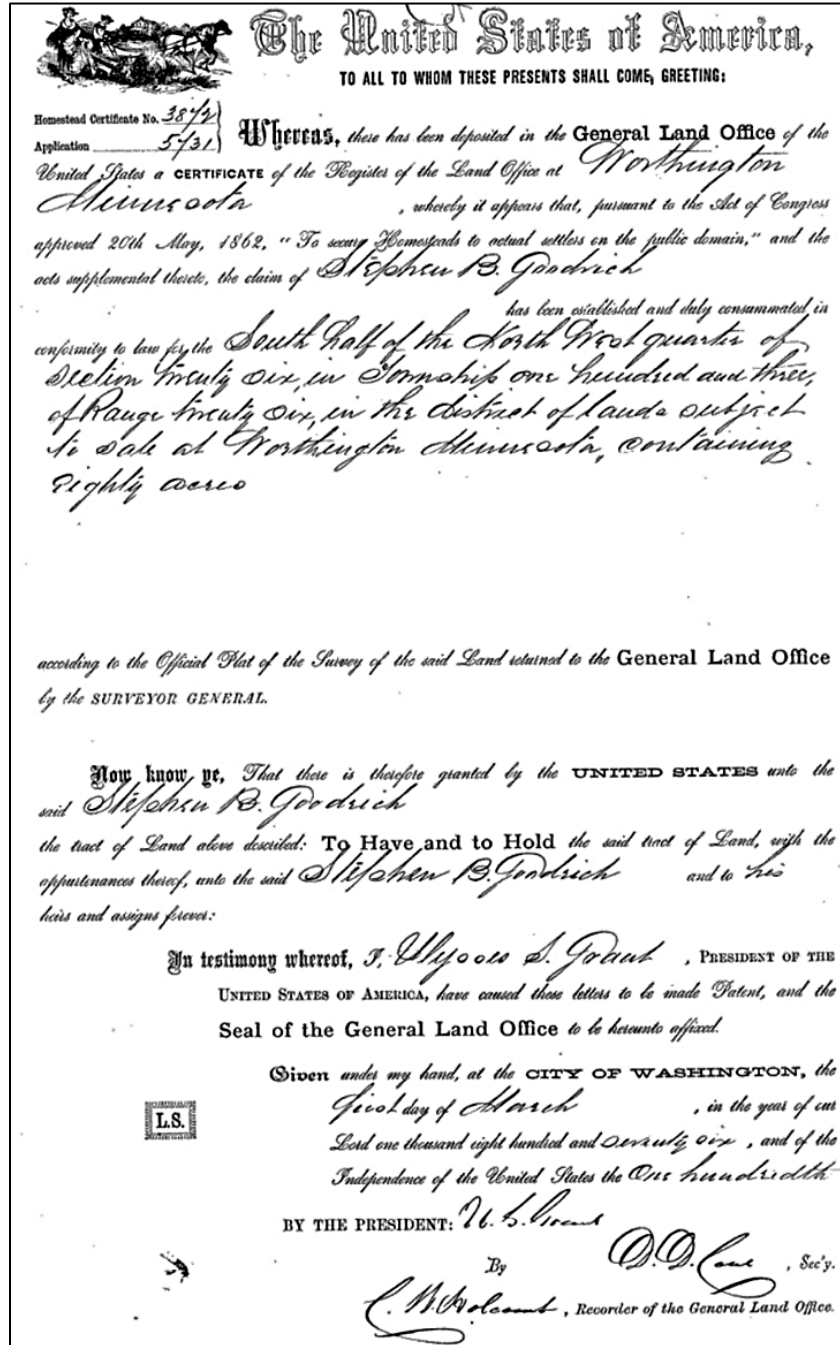 The United States of America,
TO ALL TO WHOM THESE PRESENTS SHALL COME, GREETING:
Homestead Certificate No. 3842
Application 5731
Whereas, there has been deposited in the General Land Office of the
United States a CERTIFICATE of the Register of the Land Office at Worthington
Minnesota , whereby it appears that, pursuant to the Act of Congress
approved 20th May, 1862, "To secure Homesteads to actual settlers on the public domain," and the
acts supplemental thereto, the claim of Stephen B. Goodrich
has been established and duly consummated, in
conformity to law for the South half of the North West quarter of
Section twenty six, in Township one hundred and three,
of Range twenty six, in the district of lands subject
to sale at Worthington Minnesota, containing
eighty acres
according to the Official Plat of the Survey of the said Land returned to the General Land Office
by the SURVEYOR GENERAL.
Now know ye, That there is therefore granted by the UNITED STATES unto the
said Stephen B. Goodrich
the tract of Land above described: To Have and to Hold the said tract of Land, with the
appurtenances thereof, unto the said Stephen B. Goodrich and to his
heirs and assigns forever:
In testimony whereof, I, Ulysses S. Grant , PRESIDENT OF THE
UNITED STATES OF AMERICA, have caused these letters to be made Patent, and the
Seal of the General Land Office to be hereunto affixed.
Given under my hand, at the CITY OF WASHINGTON, the
first day of March , in the year of our
L.S.
Lord one thousand eight hundred and seventy six , and of the
Independence of the United States the One hundredth
BY THE PRESIDENT: U. S. Grant
By D. D. Cone , Sec'y.
C. W. Holcomb , Recorder of the General Land Office.